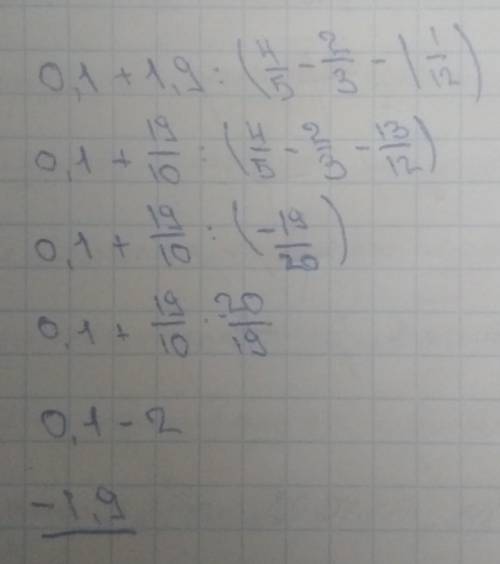 0,1 + 1,9 : (4/5 - 2/3 - 1 1/12)
0,1 + 19/10 : (4/5 - 2/3 - 13/12)
0,1 + 19/10 : (-19/20)
0,1 + 19/10 · 20/19
0,1 - 2
-1,9